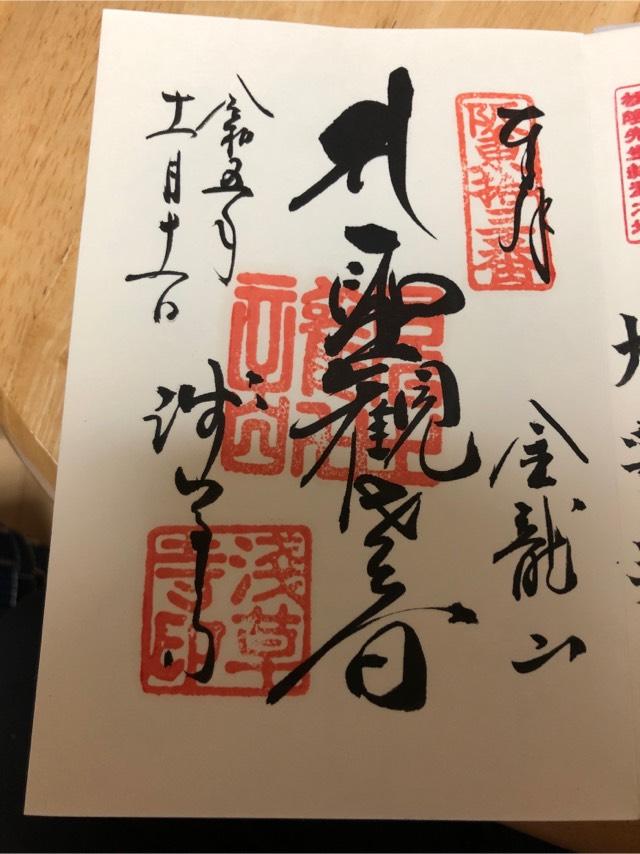 奉拝
阪東拾三番
金龍山
聖観世音
浅草寺
浅草寺印
令和五年
十一月十一日